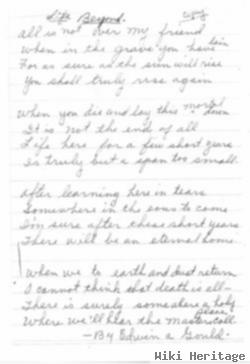 Life Beyond.
copy
All is not over my friend
When in the grave you have lain
For as sure as the sun will rise
You shall truly rise again
When you die and lay this mortal down
It is not the end of all
Life here for a few short years
Is truly but a span too small.
After learning here in tears
Somewhere in the eons to come
I'm sure after these short years
There will be an eternal home.
When we to earth and dust return
I cannot think that death is all—
There is surely somewhere a holy place
Where we'll hear the Masters call
—By Edwin A Gould.
Wiki Heritage